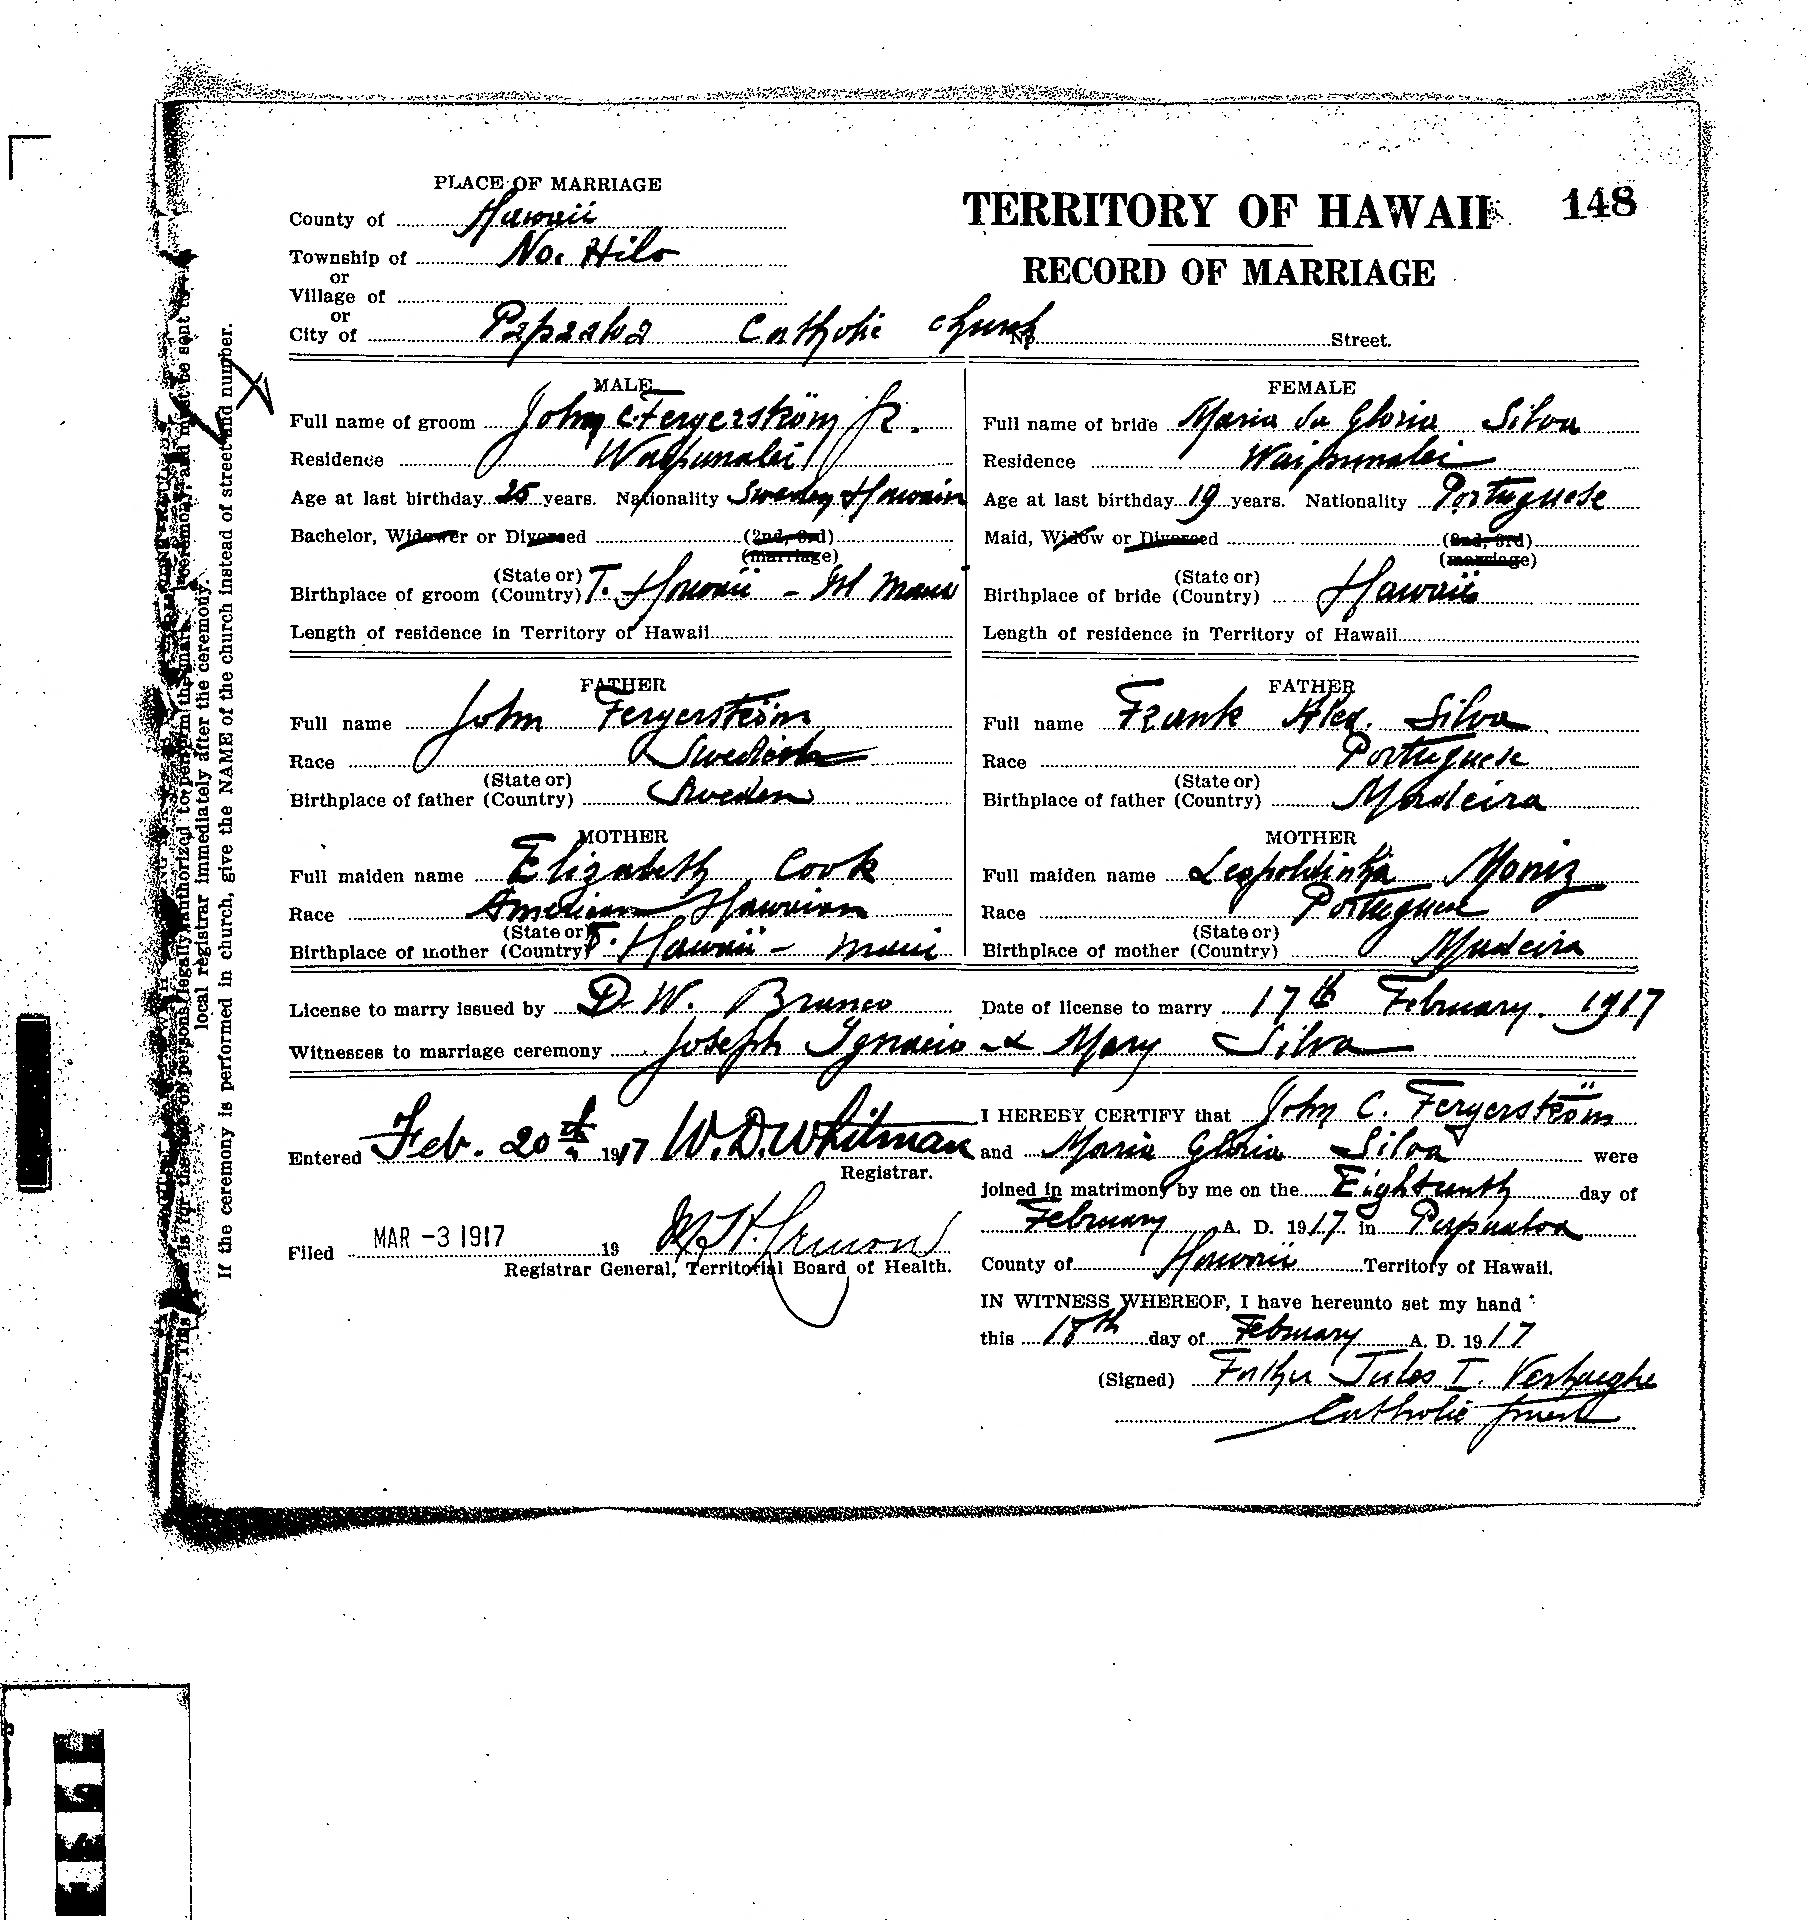 PLACE OF MARRIAGE
County of Hawaii
Township of No. Hilo
or
Village of
or
City of Papaaloa Catholic Church No Street.
TERRITORY OF HAWAII 148
RECORD OF MARRIAGE
MALE
Full name of groom John C. Fergerström Jr.
Residence Waipunalei
Age at last birthday 25 years. Nationality Sweden Hawaiin
Bachelor, Widower or Divorced (2nd, 3rd)
(marriage)
Birthplace of groom (State or) (Country) T. Hawaii - Isl Maui
Length of residence in Territory of Hawaii
FEMALE
Full name of bride Maria da Gloria Silva
Residence Waipunalei
Age at last birthday 19 years. Nationality Portuguese
Maid, Widow or Divorced (2nd, 3rd)
(marriage)
Birthplace of bride (State or) (Country) Hawaii
Length of residence in Territory of Hawaii
FATHER
Full name John Fergerström
Race Swedish
Birthplace of father (State or) (Country) Sweden
MOTHER
Full maiden name Elizabeth Cook
Race American Hawaiian
Birthplace of mother (State or) (Country) T. Hawaii - Maui
FATHER
Full name Frank Silva
Race Portuguese
Birthplace of father (State or) (Country) Madeira
MOTHER
Full maiden name Leopoldinha Moniz
Race Portuguese
Birthplace of mother (State or) (Country) Madeira
License to marry issued by D. W. Branco Date of license to marry 17th February. 1917
Witnesses to marriage ceremony Joseph Ignacio & Mary Silva
Entered Feb. 20th 1917 W. D. Whitman
Registrar.
Filed MAR -3 1917 19
Registrar General, Territorial Board of Health.
I HEREBY CERTIFY that John C. Fergerström
and Maria Gloria Silva were
joined in matrimony by me on the Eighteenth day of
February A. D. 1917 in Papaaloa
County of Hawaii Territory of Hawaii.
IN WITNESS WHEREOF, I have hereunto set my hand
this 18th day of February A. D. 1917
(Signed) Father Jules I. Verhaeghe
Catholic priest
local registrar immediately after the ceremony.
If the ceremony is performed in church, give the NAME of the church instead of street and number.